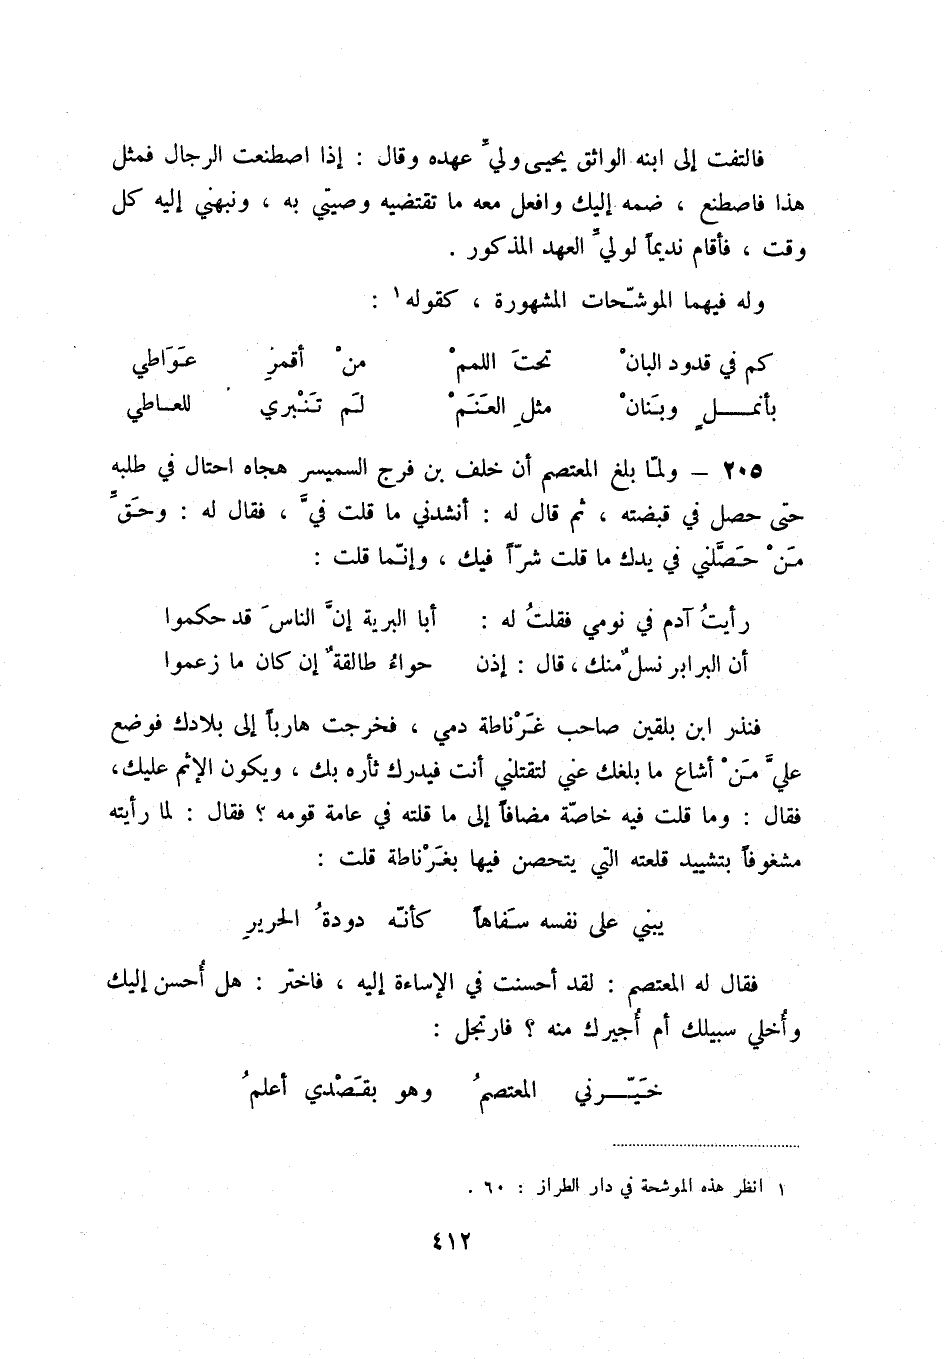 فالتفت إلى ابنه الواثق يحيى وليِّ عهده وقال : إذا اصطنعت الرجال فمثل
هذا فاصطنع ، ضمه إليك وافعل معه ما تقتضيه وصيتي به ، ونبهني إليه كل
وقت ، فأقام نديماً لوليِّ العهد المذكور .
وله فيهما الموشّحات المشهورة ، كقوله١ :
كم في قدود البانْ تحتَ اللممْ منْ أقمرٍ عَوَاطي
بأنمــلٍ وبَنانْ مثلِ العَنَمْ لَم تَنْبري للعـاطي
٢٠٥ – ولمّا بلغ المعتصم أن خلف بن فرج السميسر هجاه احتال في طلبه
حتى حصل في قبضته ، ثم قال له : أنشدني ما قلت فيَّ ، فقال له : وحَقِّ
مَنْ حَصَّلني في يدك ما قلت شرّاً فيك ، وإنّما قلت :
رأيتُ آدم في نومي فقلتُ له : أبا البرية إنَّ الناسَ قد حكموا
أن البرابر نسلٌ منك ، قال : إذن حواءُ طالقةٌ إن كان ما زعموا
فنذر ابن بلقين صاحب غَرْناطة دمي ، فخرجت هارباً إلى بلادك فوضع
عليَّ مَنْ أشاع ما بلغك عني لتقتلني أنت فيدرك ثأره بك ، ويكون الإثم عليك،
فقال : وما قلت فيه خاصّة مضافاً إلى ما قلته في عامة قومه ؟ فقال : لما رأيته
مشغوفاً بتشييد قلعته التي يتحصن فيها بغَرْناطة قلت :
يبني على نفسه سَفاهاً كأنّه دودةُ الحريرِ
فقال له المعتصم : لقد أحسنت في الإساءة إليه ، فاختر : هل أُحسن إليك
وأُخلي سبيلك أم أُجيرك منه ؟ فارتجل :
خَيّــرني المعتصمُ وهو بقَصْدي أعلمُ
١ انظر هذه الموشحة في دار الطراز : ٦٠ .
٤١٢